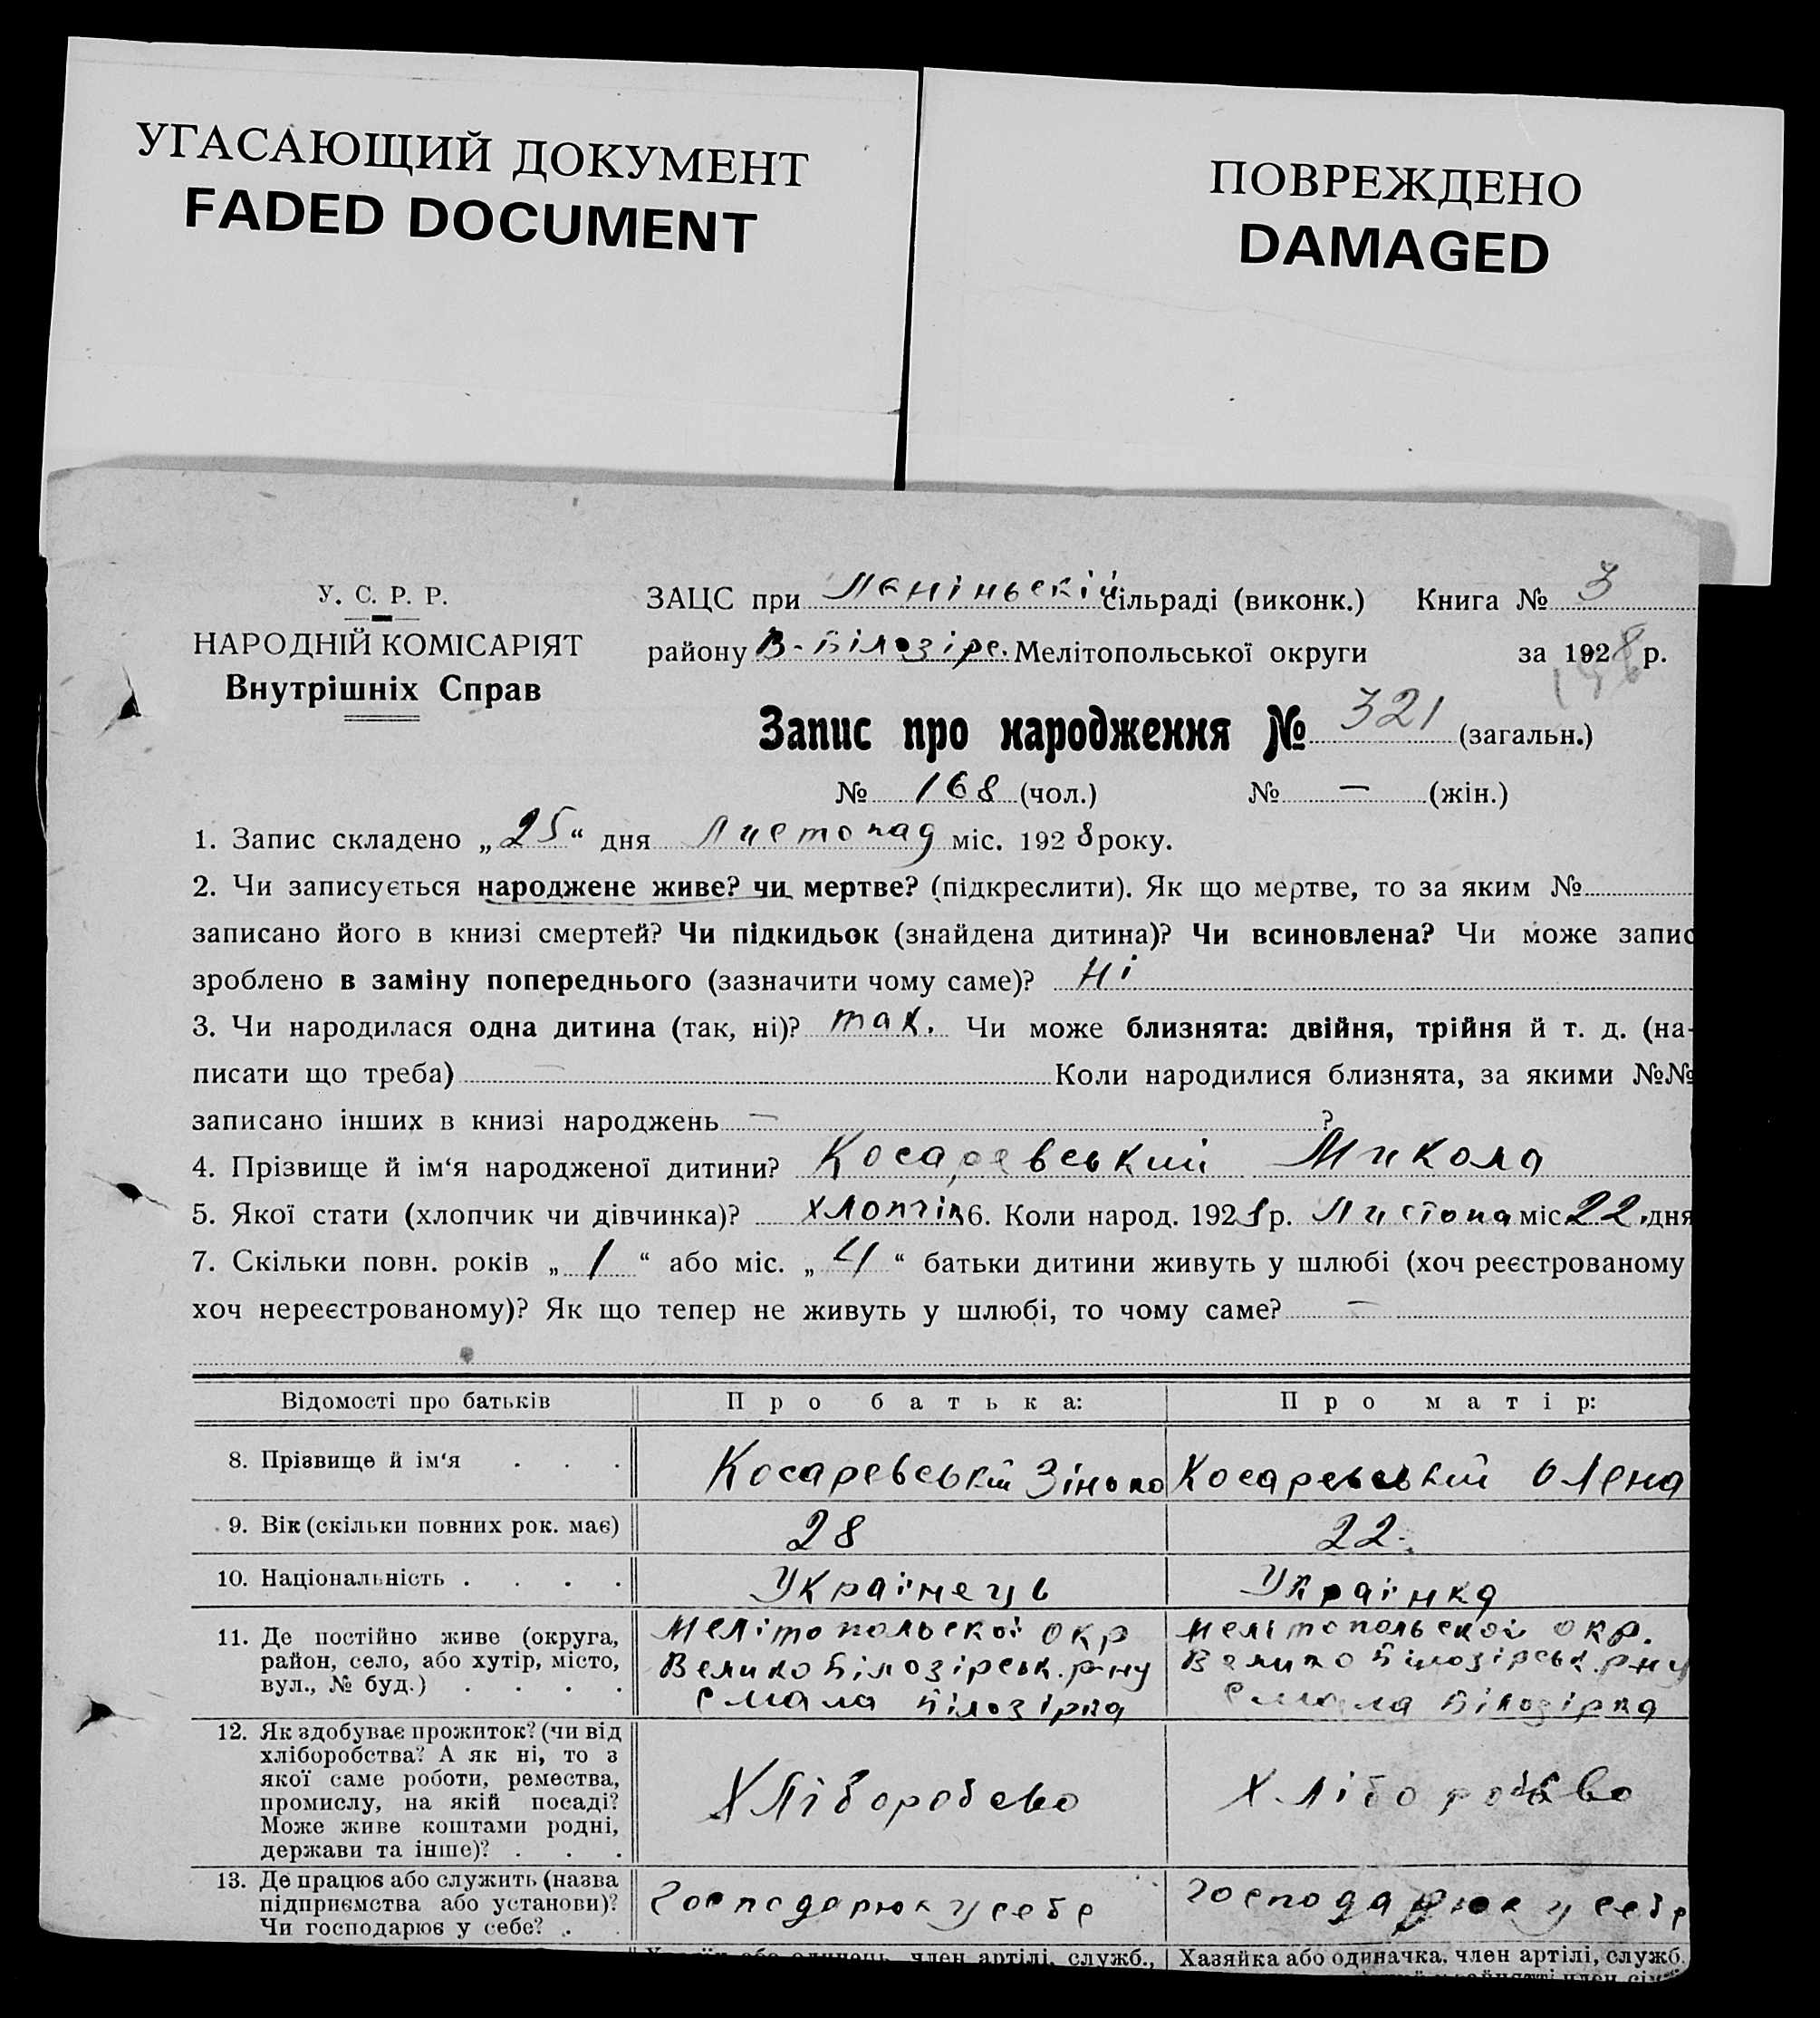 УГАСАЮЩИЙ ДОКУМЕНТ
FADED DOCUMENT
ПОВРЕЖДЕНО
DAMAGED
У. С. Р. Р.
НАРОДНІЙ КОМІСАРІЯТ
Внутрішніх Справ
ЗАЦС при Леніньскій сільраді (виконк.) Книга № 3
району В-Білозірс. Мелітопольської округи за 1928 р.
Запис про народження № 321 (загальн.)
№ 168 (чол.) № — (жін.)
1. Запис складено „25“ дня Листопад міс. 1928 року.
2. Чи записується народжене живе? чи мертве? (підкреслити). Як що мертве, то за яким №
записано його в книзі смертей? Чи підкидьок (знайдена дитина)? Чи всиновлена? Чи може запис
зроблено в заміну попереднього (зазначити чому саме)? Ні
3. Чи народилася одна дитина (так, ні)? так. Чи може близнята: двійня, трійня й т. д. (на-
писати що треба) — Коли народилися близнята, за якими №№
записано інших в книзі народжень — ?
4. Прізвище й ім‘я народженої дитини? Косаревський Микола
5. Якої стати (хлопчик чи дівчинка)? хлопчік 6. Коли народ. 1928 р. Листопа міс. 22 дня
7. Скільки повн. років „1“ або міс. „4“ батьки дитини живуть у шлюбі (хоч реєстрованому
хоч нереєстрованому)? Як що тепер не живуть у шлюбі, то чому саме? —
Відомості про батьків Про батька: Про матір:
8. Прізвище й ім‘я . . . Косаревський Зінько Косаревський Олена
9. Вік (скільки повних рок. має) 28 22.
10. Національність . . . . Українець Українка
11. Де постійно живе (округа, Мелітопольскої окр Мелітопольскої окр.
район, село, або хутір, місто, Велико Білозірськ. р-ну Велико Білозірськ. р-ну
вул., № буд.) . . . . с Мала Білозірка с Мала Білозірка
12. Як здобуває прожиток? (чи від
хліборобства? А як ні, то з
якої саме роботи, ремества,
промислу, на якій посаді? Хліборобсво Хліборобсво
Може живе коштами родні,
держави та інше)? . . .
13. Де працює або служить (назва
підприємства або установи)? Господарює у себе Господарює у себе
Чи господарює у себе? . .
член артілі, служб., Хазяйка або одиначка, член артілі, служб.